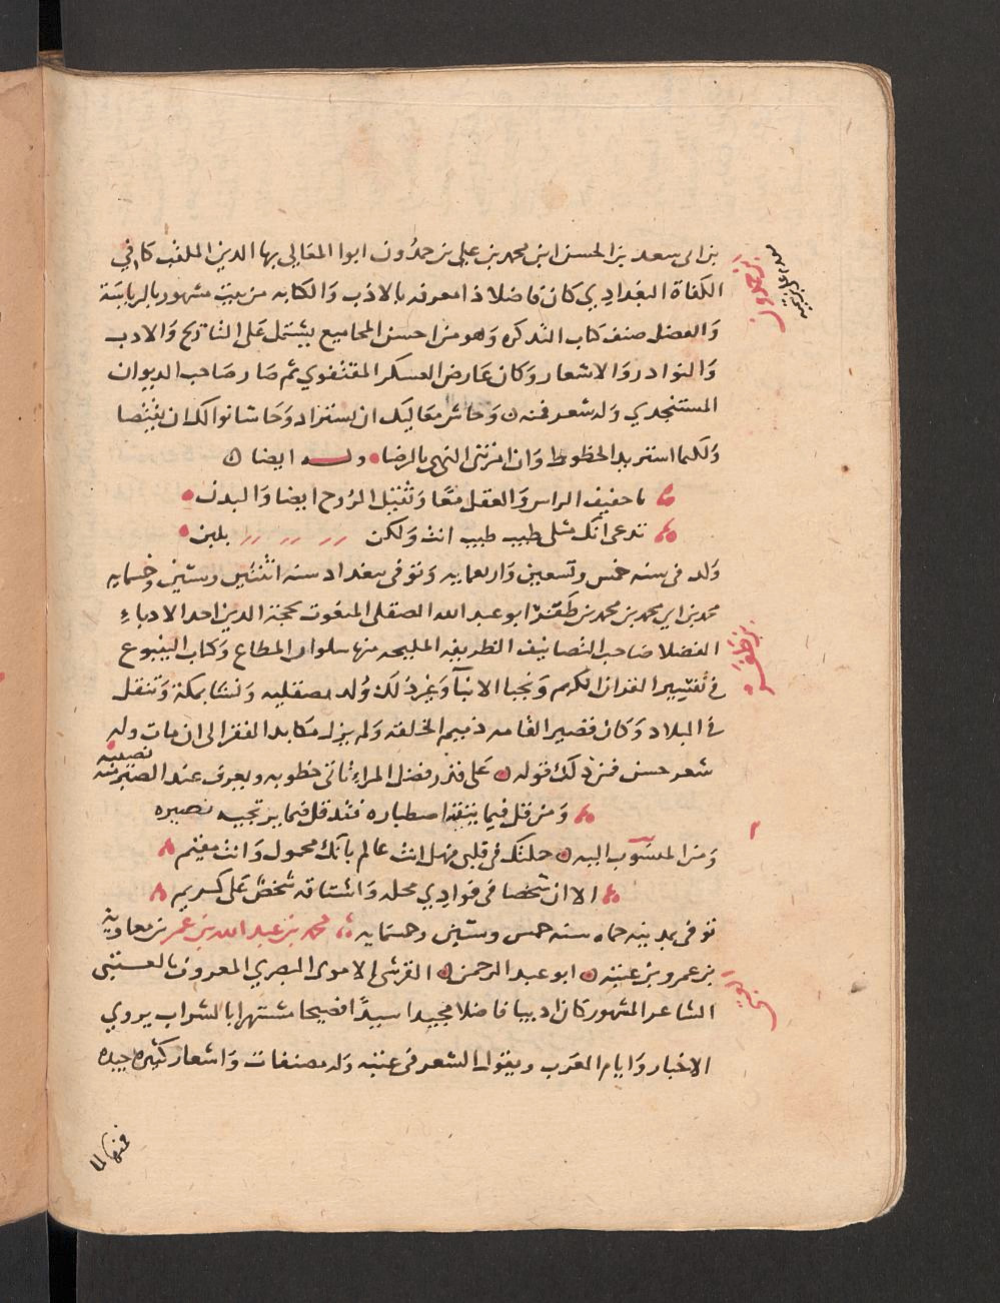 بن ابى سعد بن الحسن ابن محمد بن علي بن حمدون ابوا المعَالي بها الدين الملقب كافي
الكفاة البغدادِي كان فاضلا ذا معرفه بالادَب وَالكتابه من بيت مشهور بالرياسَة
وَالفضل صنف كتاب التذكره وَهو من احسن المجاميع يشتمل عَلى التاريخ وَالادب
وَالنوادر وَالاشعار وَكان عَارض العسكر المقتفوي ثم صَار صَاحب الديوان
المستنجدي وَله شعر فمنه وَحاشى معَاليك ان يستزاد وَحَاشا نوالك ان يقتضا
وَلكنما استزيد الحظوظ وَان امرتني النهي بالرضا وله ايضا
يا خفيف الراس وَالعقل معًا وَثقيل الرُوح ايضا وَالبدن
تدعى انك مثلى طيب طيب انت وَلكن بلبن
وَلد فى سنه خمس وتسعين وَاربعمايه وَتوفى ببغداد سنه اثنتَين وستين وخسمايه
محمد بن ابي محمد بن محمد بن ظَفَر ابو عبد الله الصقلى المنعوت بحجة الدين احد الادباءِ
الفضلا صَاحب التصَانيف الظريفه المليحه منها سلوان المطاع وَكتاب الينبوع
في تفسِير القران الكريم وَنجبا الابنآ وَغير ذ لك وُلد بصقليه وَنشا بمكة وَتنقل
في البلاد وَكان قصير القامه ذميم الخلقه وَلم يزل مكابد الفقر الى ان مات وله
شعر حسن فمن ذلك قوله عَلى قدر فضل المراء تاتى خطوبه ويعرف عند الصَبر منه نصيبه
وَمن قل فيما يتقيه اصطباره فقد قل فيما يرتجيه نصيره
وَمن المنسوب اليه حملتك في قلبى فهل انت عالم بانك محمول وَانت مقيم
الا ان شخصا فى فوادِي محله وَاشتاقه شخصٌ عَلى كريم
توفى بمدينه حماه سنه خمس وستين وخمسمايه محمد بن عبد الله بن عمر بن معاويه
بن عمرو بن عتبه ابو عبد الرحمن القرشي الاموى البصري المعروف بالعتبى
الشاعر المشهور كان اديبا فاضلا مجيدا سيدًا فصيحا مشتهرا بالشراب يروي
الاخبار وَايام العَرب ويقول الشعر فى عتبه وَله مصنفات وَاشعار كثيره جيده
بن حمدون
بن ظفر
فمنها